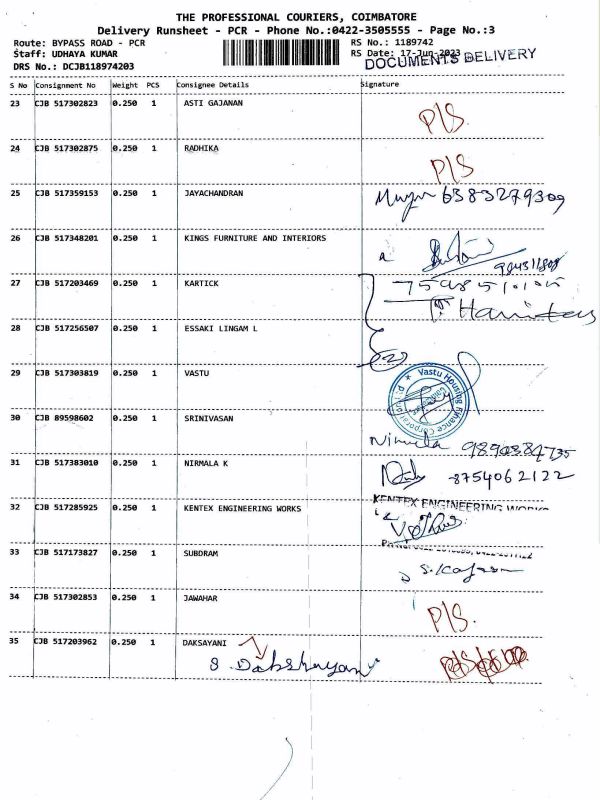 THE PROFESSIONAL COURIERS, COIMBATORE
Delivery Runsheet - PCR - Phone No.:0422-3505555 - Page No.:3
Route: BYPASS ROAD - PCR RS No.: 1189742
Staff: UDHAYA KUMAR RS Date: 17-Jun-2023
DOCUMENTS DELIVERY
DRS No.: DCJB118974203
S No Consignment No Weight PCS Consignee Details Signature
23 CJB 517302823 0.250 1 ASTI GAJANAN P/S.
24 CJB 517302875 0.250 1 RADHIKA P/S
25 CJB 517359153 0.250 1 JAYACHANDRAN 6383279309
26 CJB 517348201 0.250 1 KINGS FURNITURE AND INTERIORS
27 CJB 517203469 0.250 1 KARTICK
28 CJB 517256507 0.250 1 ESSAKI LINGAM L
29 CJB 517303819 0.250 1 VASTU
Vastu Housing Finance Corporation Ltd
30 CJB 89598602 0.250 1 SRINIVASAN
Nirmala
31 CJB 517383010 0.250 1 NIRMALA K 8754062122
32 CJB 517285925 0.250 1 KENTEX ENGINEERING WORKS
KENTEX ENGINEERING WORKS
33 CJB 517173827 0.250 1 SUBDRAM
34 CJB 517302853 0.250 1 JAWAHAR P/S.
35 CJB 517203962 0.250 1 DAKSAYANI
S. Dakshayani